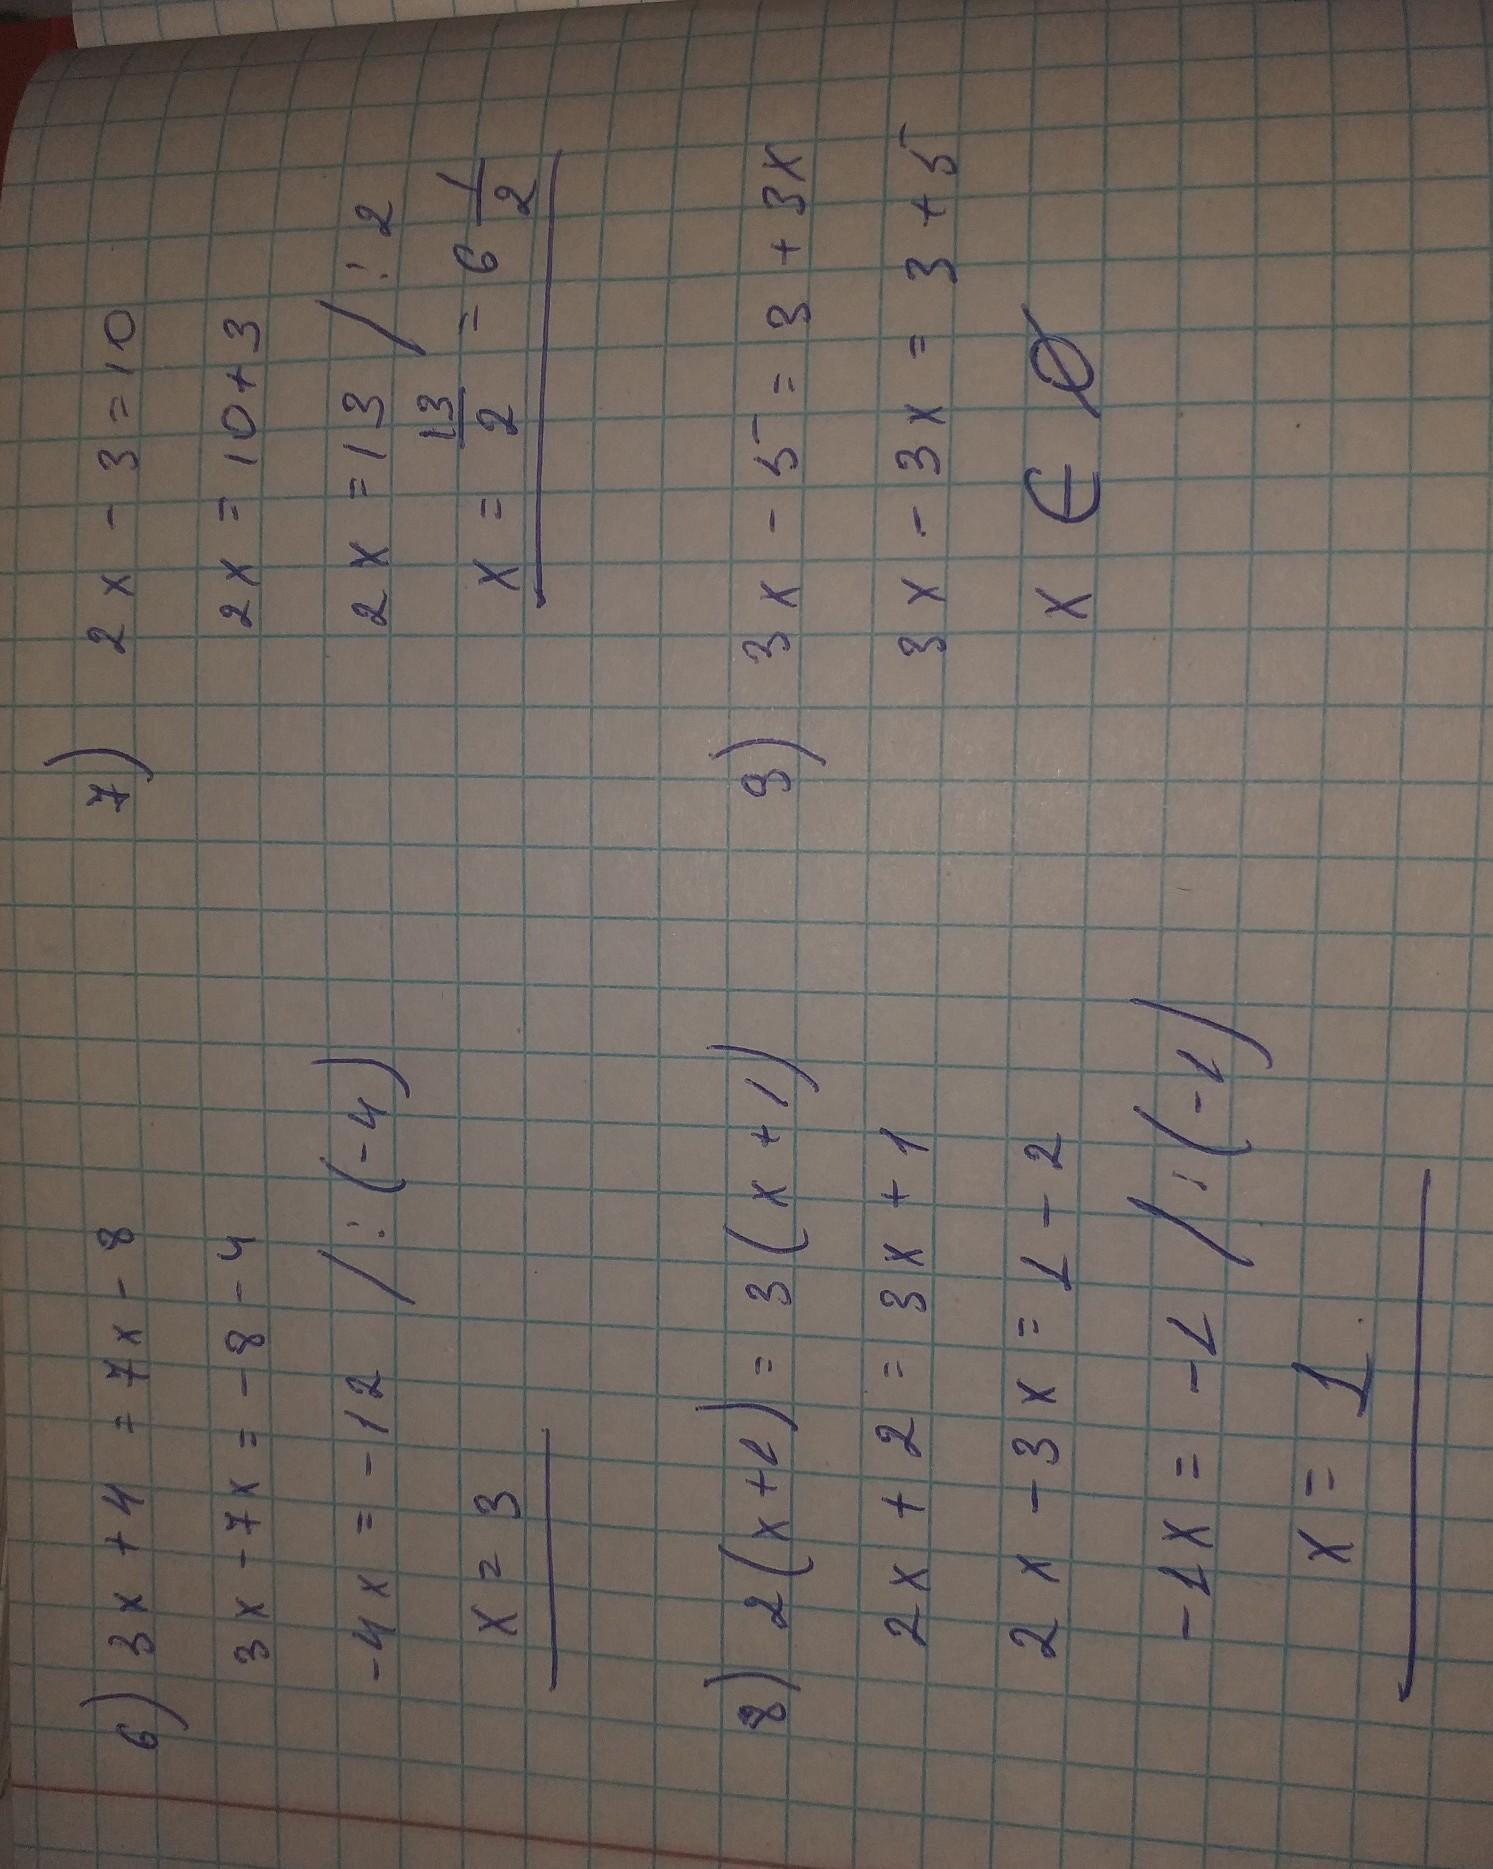 6) 3x + 4 = 7x - 8
3x - 7x = -8 - 4
-4x = -12 / : (-4)
x = 3
7) 2x - 3 = 10
2x = 10 + 3
2x = 13 / : 2
x = 13/2 = 6 1/2
8) 2(x+1) = 3(x+1)
2x + 2 = 3x + 1
2x - 3x = 1 - 2
-1x = -1 / : (-1)
x = 1
9) 3x - 5 = 3 + 3x
3x - 3x = 3 + 5
x ∈ ∅